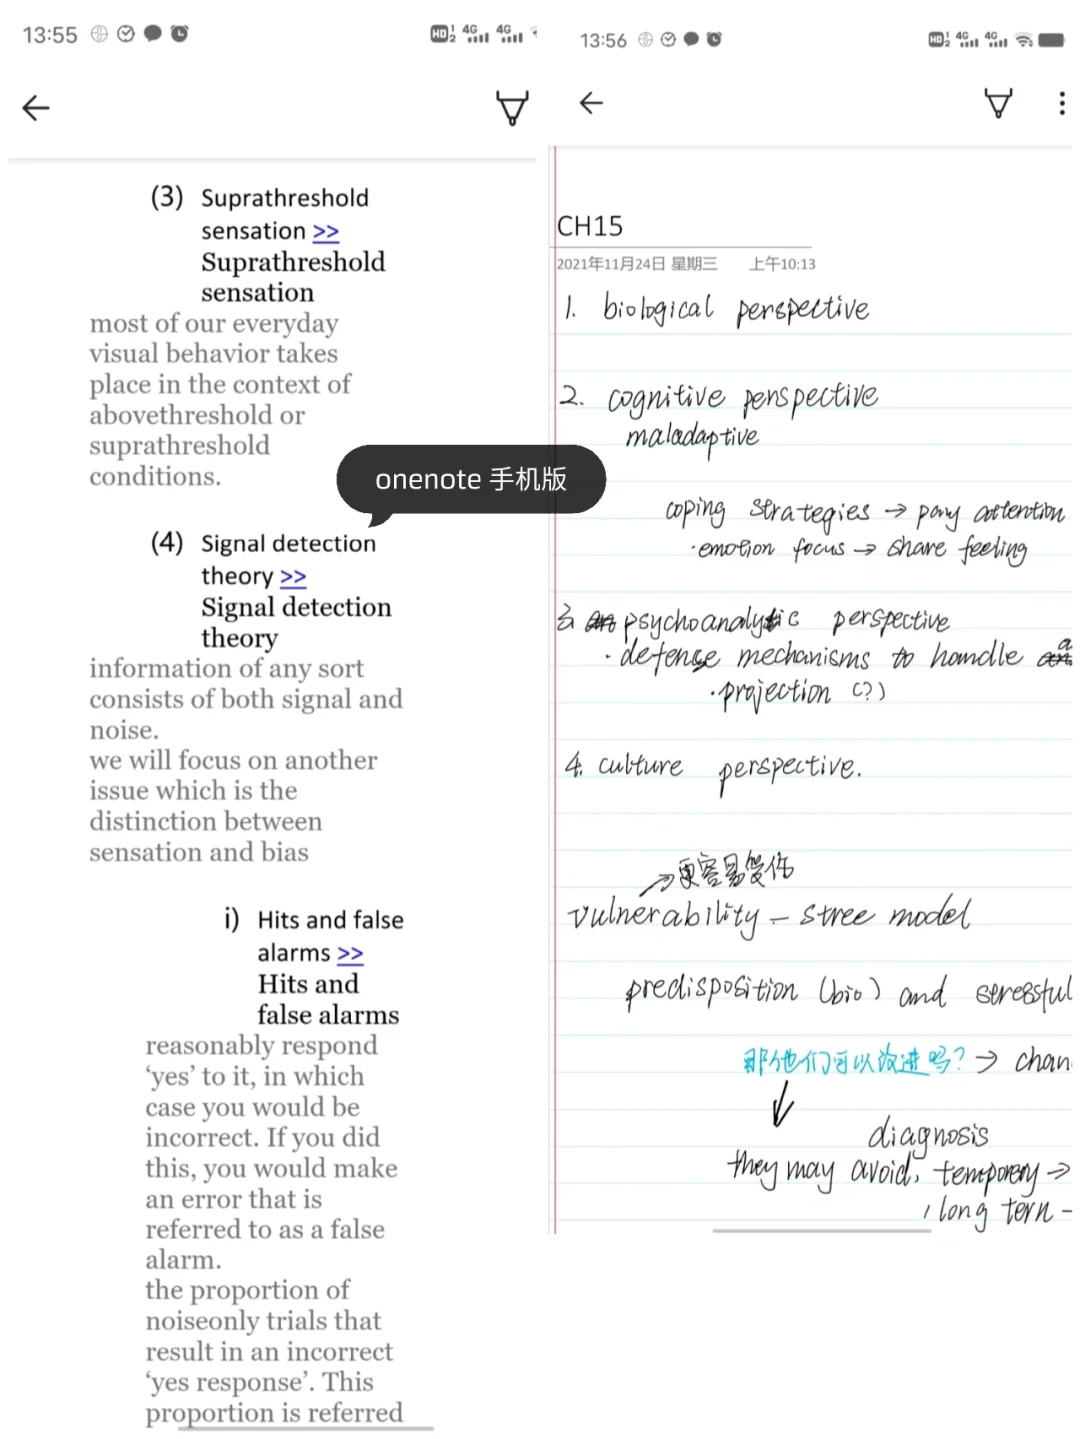 13:55
HD 1 2 4G 4G
(3) Suprathreshold
sensation >>
Suprathreshold
sensation
most of our everyday
visual behavior takes
place in the context of
abovethreshold or
suprathreshold
conditions.
(4) Signal detection
theory >>
Signal detection
theory
information of any sort
consists of both signal and
noise.
we will focus on another
issue which is the
distinction between
sensation and bias
i) Hits and false
alarms >>
Hits and
false alarms
reasonably respond
‘yes’ to it, in which
case you would be
incorrect. If you did
this, you would make
an error that is
referred to as a false
alarm.
the proportion of
noiseonly trials that
result in an incorrect
‘yes response’. This
proportion is referred
onenote 手机版
13:56
HD 1 2 4G 4G
CH15
2021年11月24日 星期三 上午10:13
1. biological perspective
2. cognitive perspective
maladaptive
coping strategies → pay attention
·emotion focus → share feeling
3. psychoanalytic perspective
· defense mechanisms to handle
·projection (?)
4. culture perspective.
→更容易受伤
vulnerability - stree model
predisposition (bio) and seressful
那他们可以改进吗? → chan
diagnosis
they may avoid, temporery →
long tern -